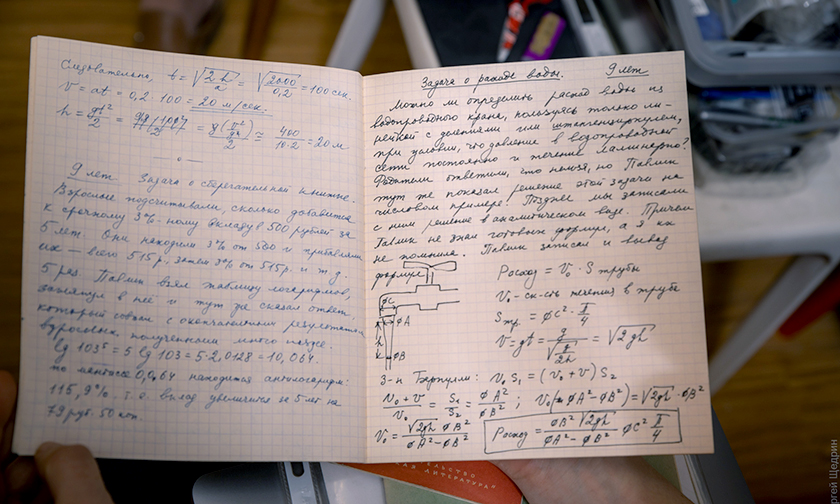 Следовательно, t = √(2h/a) = √(2000/0,2) = 100 сек.
v = at = 0,2 · 100 = 20 м/сек.
h = gt²/2 = g(v²/g²)/2 ≅ 400/10·2 = 20 м
9 лет Задача о сберегательной книжке.
Взрослые подсчитывали, сколько добавится
к срочному 3%-ному вкладу в 500 рублей за
5 лет. Они находили 3% от 500 и прибавляли
их — всего 515 р, затем 3% от 515 р. и т.д.
5 раз. Павлик взял таблицу логарифмов,
заглянул в неё и тут же сказал ответ,
который совпал с окончательным результатом
взрослых, полученным много позже.
lg 103⁵ = 5 lg 103 = 5·2,0128 = 10,064.
по мантиссе 0,064 находится антилогарифм:
115,9%. т.е. вклад увеличится за 5 лет на
79 руб. 50 коп.
Задача о расходе воды. 9 лет
Можно ли определить расход воды из
водопроводного крана, пользуясь только ли-
нейкой с делениями или штангенциркулем,
при условии, что давление в водопроводной
сети постоянно и течение ламинарно?
Родители ответили, что нельзя, но Павлик
тут же показал решение этой задачи на
числовом примере. Позднее мы записали
с ним решение в аналитическом виде. Причём
Павлик не знал готовых формул, а я их
не помнила. Павлик записал и вывод
формулы
Расход = V₀ · S трубы
V₀ - ск-сть течения в трубе
S тр. = øC² · π/4
V = gt = g/√(g/2h) = √2gh
øC
øA
h
øB
З-н Бернулли: V₀S₁ = (V₀ + V) S₂
(V₀ + V)/V₀ = S₁/S₂ = øA²/øB² ; V₀(øA² − øB²) = √2gh · øB²
V₀ = √2gh øB²/(øA² − øB²)
Расход = øB² √2gh/(øA² − øB²) · øC² π/4
Щедрин